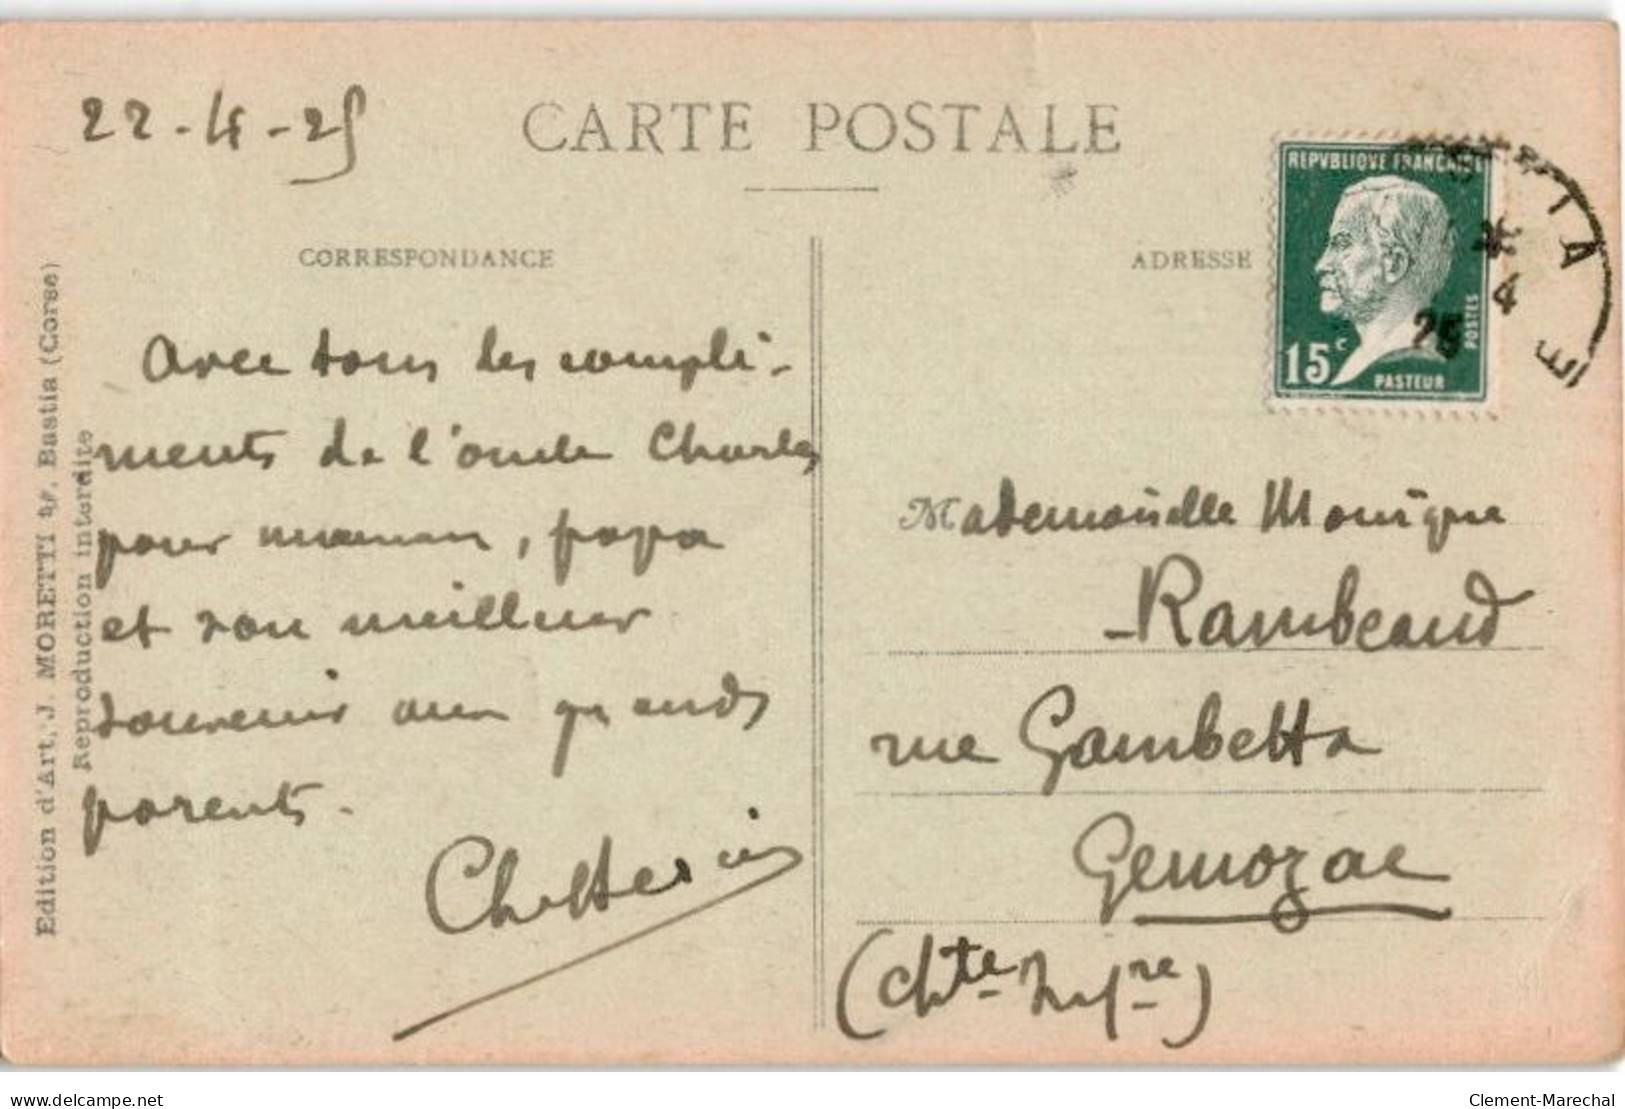 22-4-25
CARTE POSTALE
CORRESPONDANCE
ADRESSE
REPVBLIQVE FRANCAISE
15c
POSTES
PASTEUR
4
25
Avec tous les compli-
ments de l'oncle Charles
pour maman, papa
et son meilleur
souvenir aux grands
parents.
Mademoiselle Monique
Rambeaud
rue Gambetta
Gemozac
(Chte Infre)
Edition d'Art, J. MORETTI, Bastia (Corse)
Reproduction interdite
www.delcampe.net
Clement-Marechal